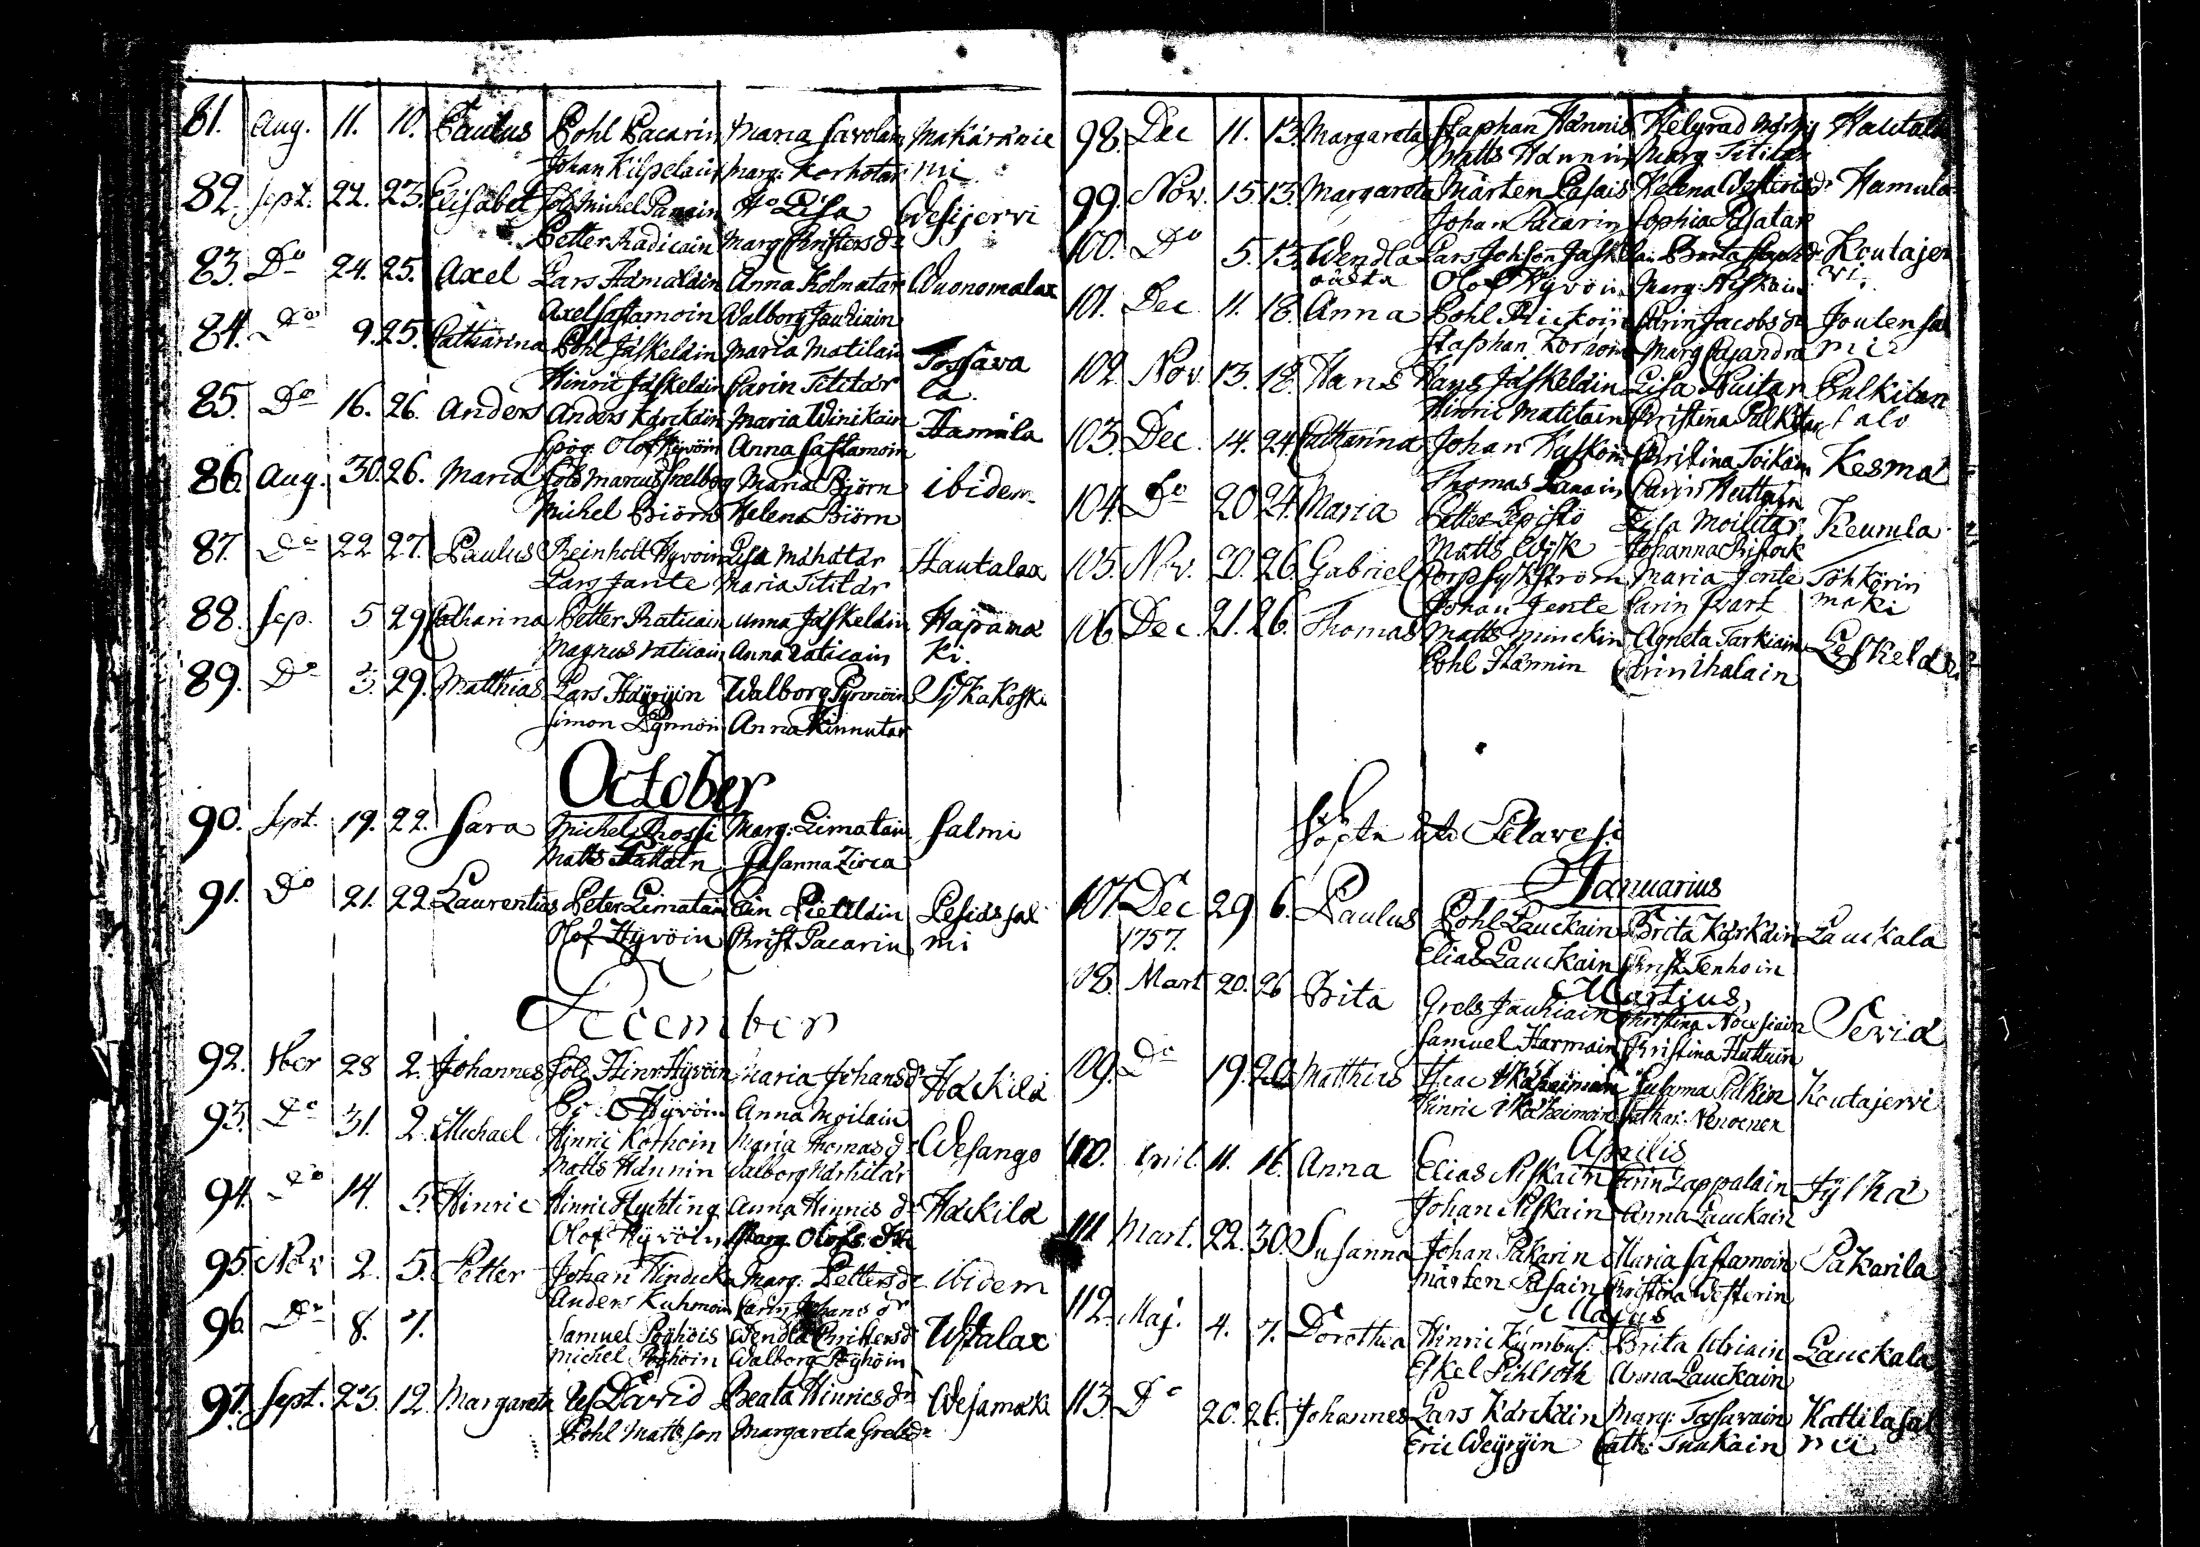 81. Aug. 11. 10. Paulus Pohl Pacarin Maria Savolain Makäränie
Johan Kilpelain Marg: Korhotar mi
82. Sept. 22. 23. Elisabet Sold Michel Panain H:o Lisa Wesijervi
Petter Radicain Marg Christersdr
83. Do 24. 25. Axel Lars Hämäläin Anna Holmatar Wuonomalax
Axel Sastamoin Walborg Jauhiain
84. Do 9. 25. Catharina Pohl Jäskeläin Maria Matilain Tossava
Hinric Jäskeläin Carin Tititär la.
85. Do 16. 26. Anders Anders Kärckäin Maria Winikain Hamula
Spög. Olof Hyvöin Anna Sastamoin
86. Aug. 30. 26. Maria Sold Marcus Skelbog Maria Björn ibidem
Michel Biörn Helena Biörn
87. Do 22 27. Paulus Reinholt Hyvöin Lisa Mähötär Hautalax
Lars Jante Maria Tititär
88. Sep. 5 29 Catharina Petter Raticain Anna Jäskeläin Häpämä
Magnus Raticain Anna Raticain ki.
89. Do 3. 29. Matthias Lars Häyryin Walborg Pynnöin Sÿskakoski
Simon Pynnöin Anna Kinnutar
October
90. Sept. 19. 22. Sara Michel Rossi Marg: Limatain Salmi
Matts Hattain Susanna Zirca
91. Do 21. 22 Laurentius Peter Limatain Elin Pietiläin Pesiässal
Olof Hyvöin Christ Pacarin mi
December
92. 8ber 28 2. Johannes Sold Hinr Hyvöin Maria Johansdr Häckilä
Hyvöin Anna Moilain
93. Do 31. 2. Michael Hinric Korhoin Maria Thomasdr Wesango
Matts Hännin Walborg Kärkitär
94. Do 14. 5. Hinric Hinric Flychting Anna Hinricsdr Häckilä
Olof Hyvöin Marg. Olofs
95. Nov 2. 5. Petter Johan Hindrick Marg: Pettersdr ibidem
Anders Kuhmoin Carin Johansdr
96. Do 8. 7. Samuel Pöyhöis Wendla Christersdr Ustalax
Michel Pöyhöin Walborg Pöyhöin
97. Sept. 23. 12. Margareta Uf David Beata Hinricsdr Wesamäki
Pohl Mattsson Margareta Grelsdr
98. Dec 11. 13. Margareta Staphan Hännis Helgrad Hautala
Matts Hännin Marg Tititär
99. Nov. 15. 13. Margareta Mårten Pasais Helena Westerisdr Hamula
Johan Pacarin Sophia Pasatar
100. Do 5. 13. Wendla Lars Johsson Jäskeläin Brita Koutajer
oächta Olof Hyvöin Marg: Niskain vi.
101. Dec 11. 18. Anna Pohl Rickoin Carin Jacobsdr Joutensal
Staphan Korhoin Marg Cajandra mi
102. Nov 13. 18. Hans Hans Jäskeläin Lisa Nuitar Pulkitan
Hinric Matilain Christina Pulkitar salo
103. Dec. 14. 24 Catharina Johan Huskoin Christina Toikain Kesmä
Thomas Panain Carin Huttuin
104. Do 20 24. Maria Petter Lepistö Lisa Moilitar Keumla
Matts Wÿsk Johanna Ristock
105. Nov. 20. 26. Gabriel Corp Sylkström Maria Jente Töhkörin
Johan Jente Carin Svart mäki
106 Dec. 21. 26. Thomas Matts Minckin Agneta Tarkiain Leskelä
Pohl Hännin Carin Ihalain
Pelavesi
Januarius
107. Dec 29 6. Paulus Pohl Lauckain Brita Kärkäin Lauckala
1757. Elias Lauckain Christ Tenhoin
Martius
108. Mart 20. 26 Brita Grels Jauhiain Christina Nousiain Seviä
Samuel Harmain Christina Huttuin
109. Do 19. 20. Matthias Isac Ikäheimoin Susanna Pulkin Koutajervi
Hinric Ikäheimoin Cathar: Nenoenen
Aprilis
110. April. 11. 16. Anna Elias Niskain Carin Lappalain Jylhä
Johan Niskain Anna Lauckain
111. Mart. 22. 30. Susanna Johan Pakarin Maria Sastamoin Pakarila
Mårten Pasain Christina Westerin
Majus
112. Maj. 4. 7. Dorothea Hinric Kumbul. Brita Uhriain Lauckala
Eskel Pihlroth Anna Lauckain
113. Do 20. 26. Johannes Lars Kärckäin Marg: Tossavain Kattilasal
Eric Weyryin Cath: Tuukain mi.